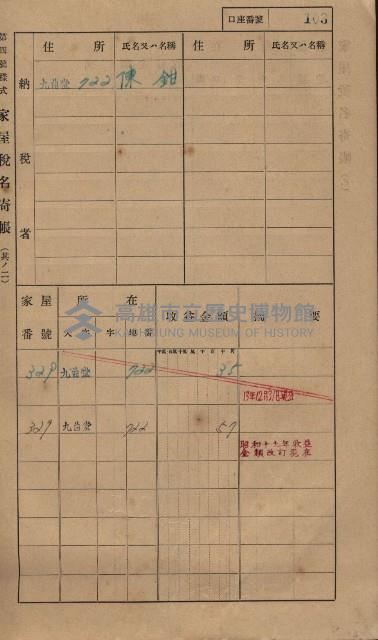 口座番號 103
第四號樣式 家屋稅名寄帳 (其ノ二)
納稅者
住所 氏名又ハ名稱 住所 氏名又ハ名稱
九曲堂 722 陳 鉗
家屋番號 所在 收益金額 摘要
大字 字 地番
329 九曲堂 722 35
329 九曲堂 722 57
昭和十六年收益
金額改訂現在
高雄市立歷史博物館
KAOHSIUNG MUSEUM OF HISTORY